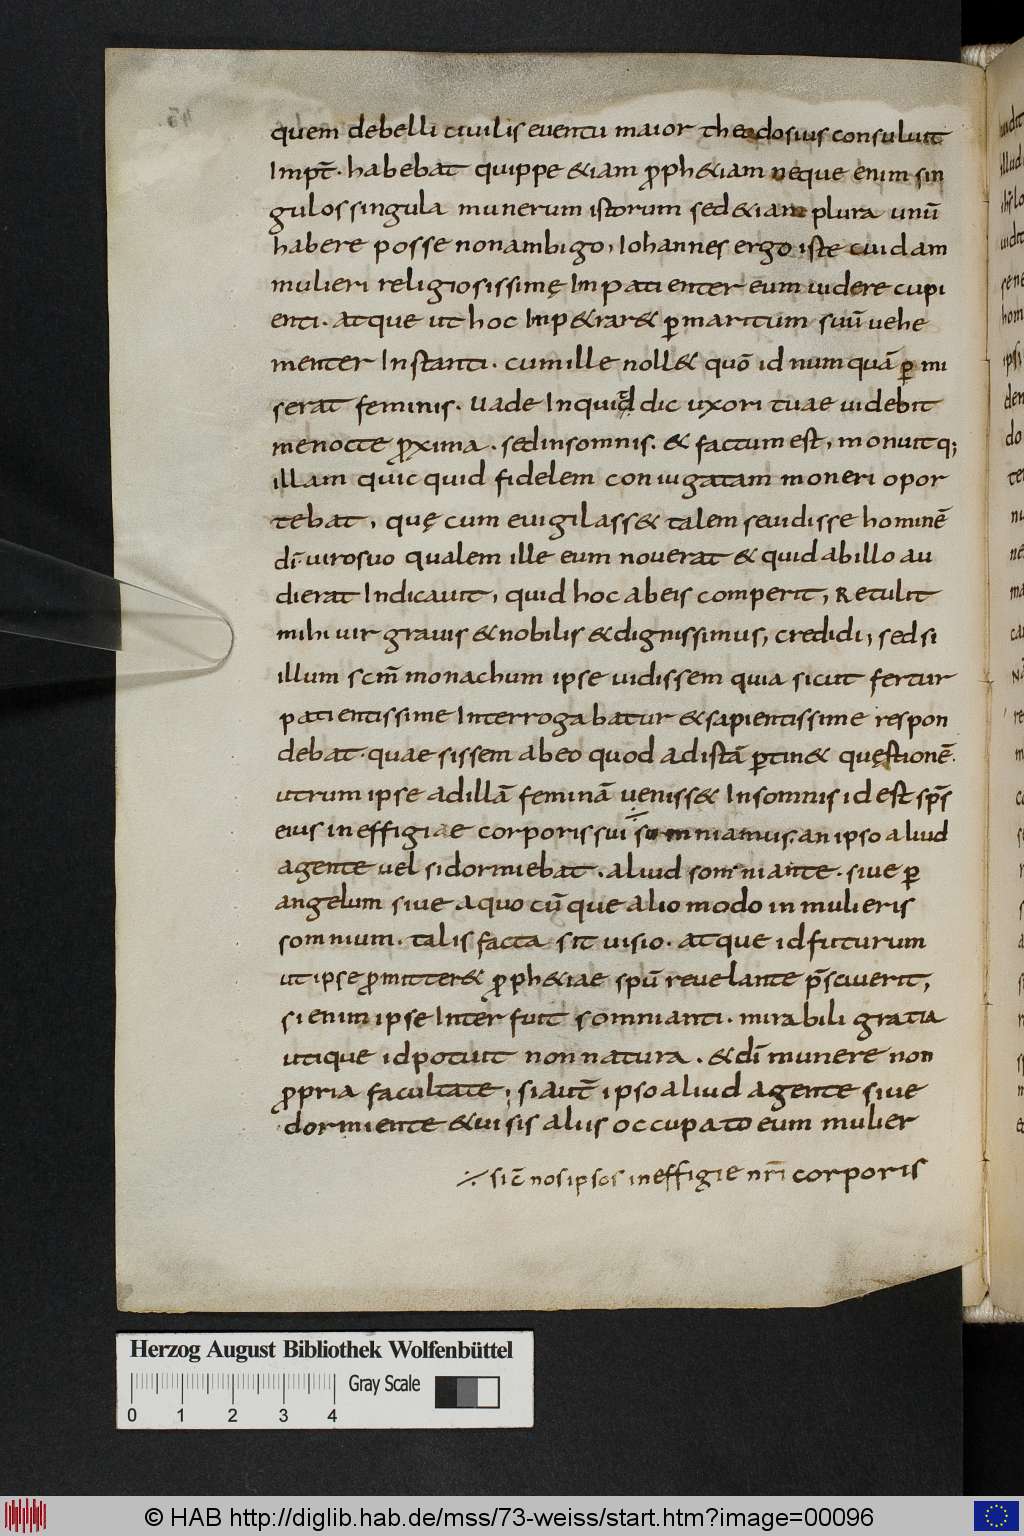 quem debelli ciuilis euentu maior theodosius consuluit
Imp̄t · habebat quippe &iam ꝓph&iam neque enim sin
gulos singula munerum istorum sed&iam plura unū
habere posse nonambigo, Iohannes ergo iste cuidam
mulieri religiosissimę Inpatienter eum uidere cupi
enti · atque ut hoc Inp&rar& ꝑmaritum suū uehe
menter Instanti · cumille noll& quō id numquā ꝑmi
serat feminis · Uade Inquid dic uxori tuae uidebit
menocte ꝓxima · sedinsomnis · & factumest, monuitq;
illam quicquid fidelem coniugatam moneri opor
tebat, quę cum euigilass& talem seuidisse hominē
dī · uirosuo qualem ille eum nouerat & quid abillo au
dierat Indicauit, quid hoc abeis comperit, Retulit
mihi uir grauis &nobilis &dignissimus, credidi, sed si
illum scm̄ monachum ipse uidissem quia sicut fertur
patientissime Interrogabatur &sapientissime respon
debat · quaesissem abeo quod adistā ꝑtin& quęstionē ·
utrum ipse adillā feminā ueniss& Insomnis id est sp̄s
eius ineffigiae corporis sui ⁒ somniamus · an ipso aliud
agente uel si dormiebat · aliud somniante · siue ꝑ
angelum siue aquocūque alio modo in mulieris
somnium · talis facta sit uisio · atque id futurum
ut ipse ꝓmitter& ꝓph&iae spū reuelante p̄sciuerit,
si enim ipse Interfuit somnianti · mirabili gratia
utique id potuit non natura · &dī munere non
ꝓpria facultate, siaut̄ ipso aliud agente siue
dormiente &uisis aliis occupato eum mulier
⁒ sic̄ nosipsos ineffigie nr̄i corporis
Herzog August Bibliothek Wolfenbüttel
Gray Scale
0 1 2 3 4
© HAB http://diglib.hab.de/mss/73-weiss/start.htm?image=00096